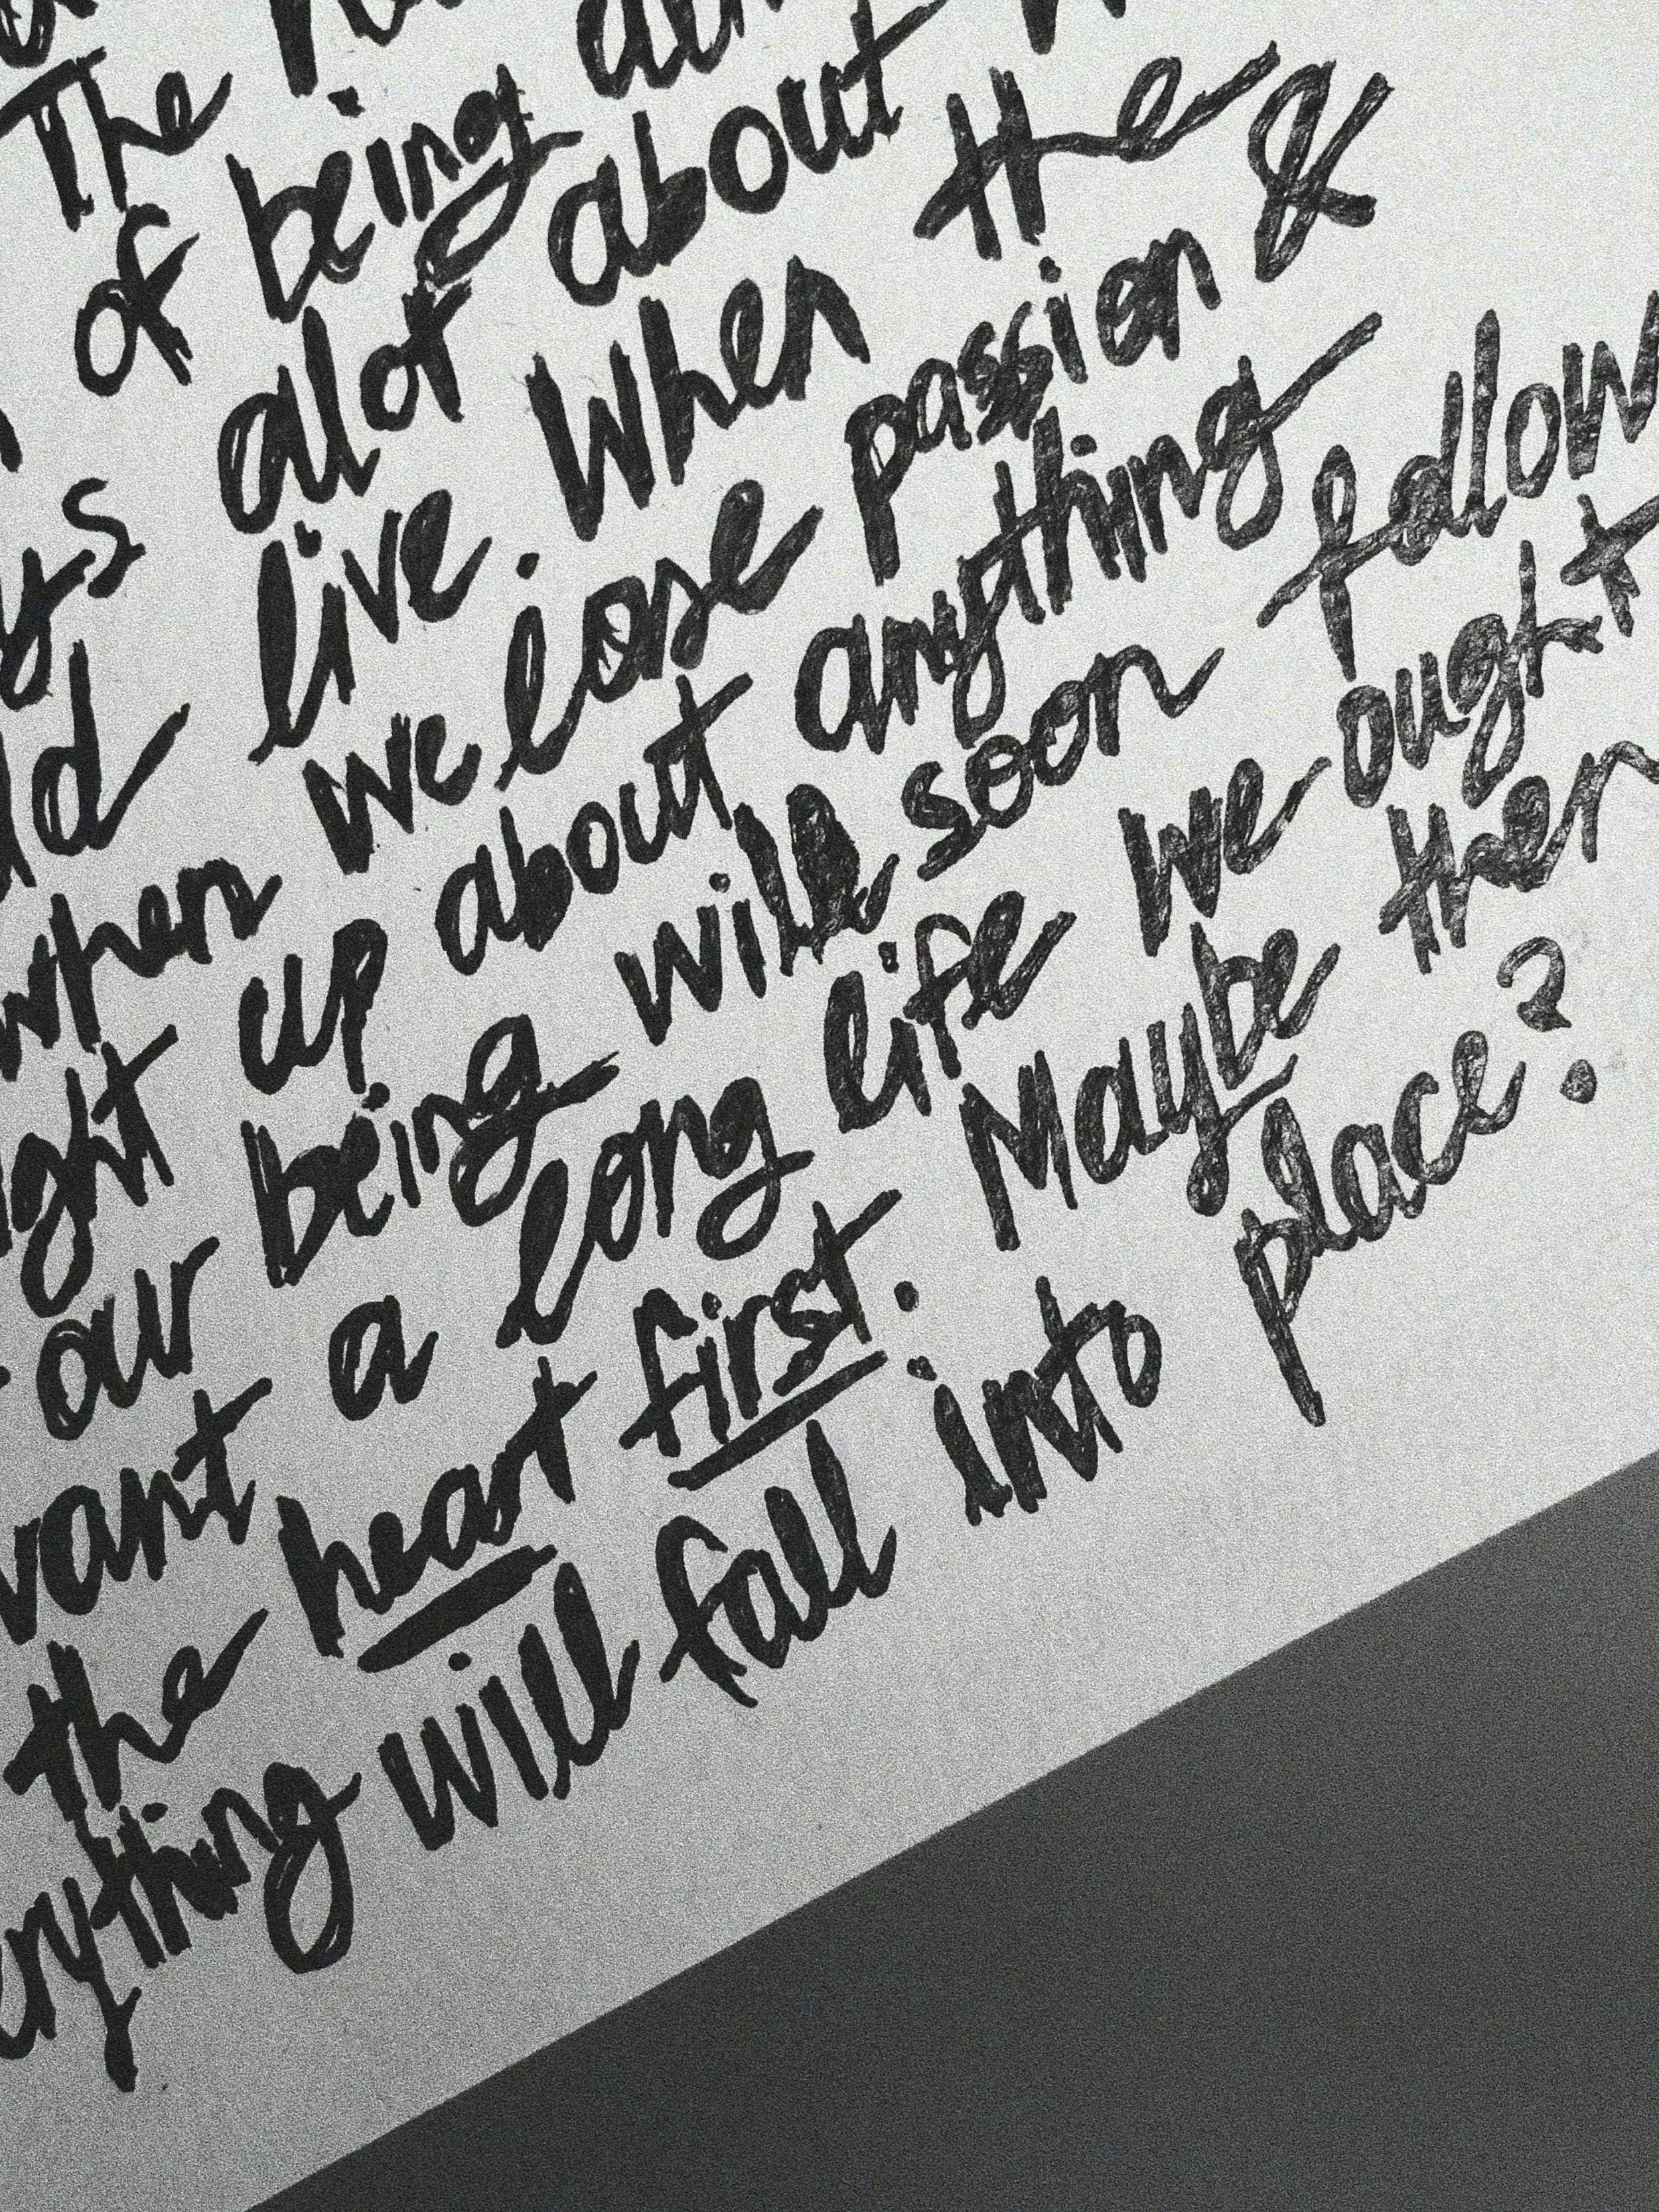 The
of being
ys alot about
ld live. When the
when we lose passion &
ght up about anything
our being will soon follow
want a long life we ought t
the heart first. Maybe then
rything will fall into place?